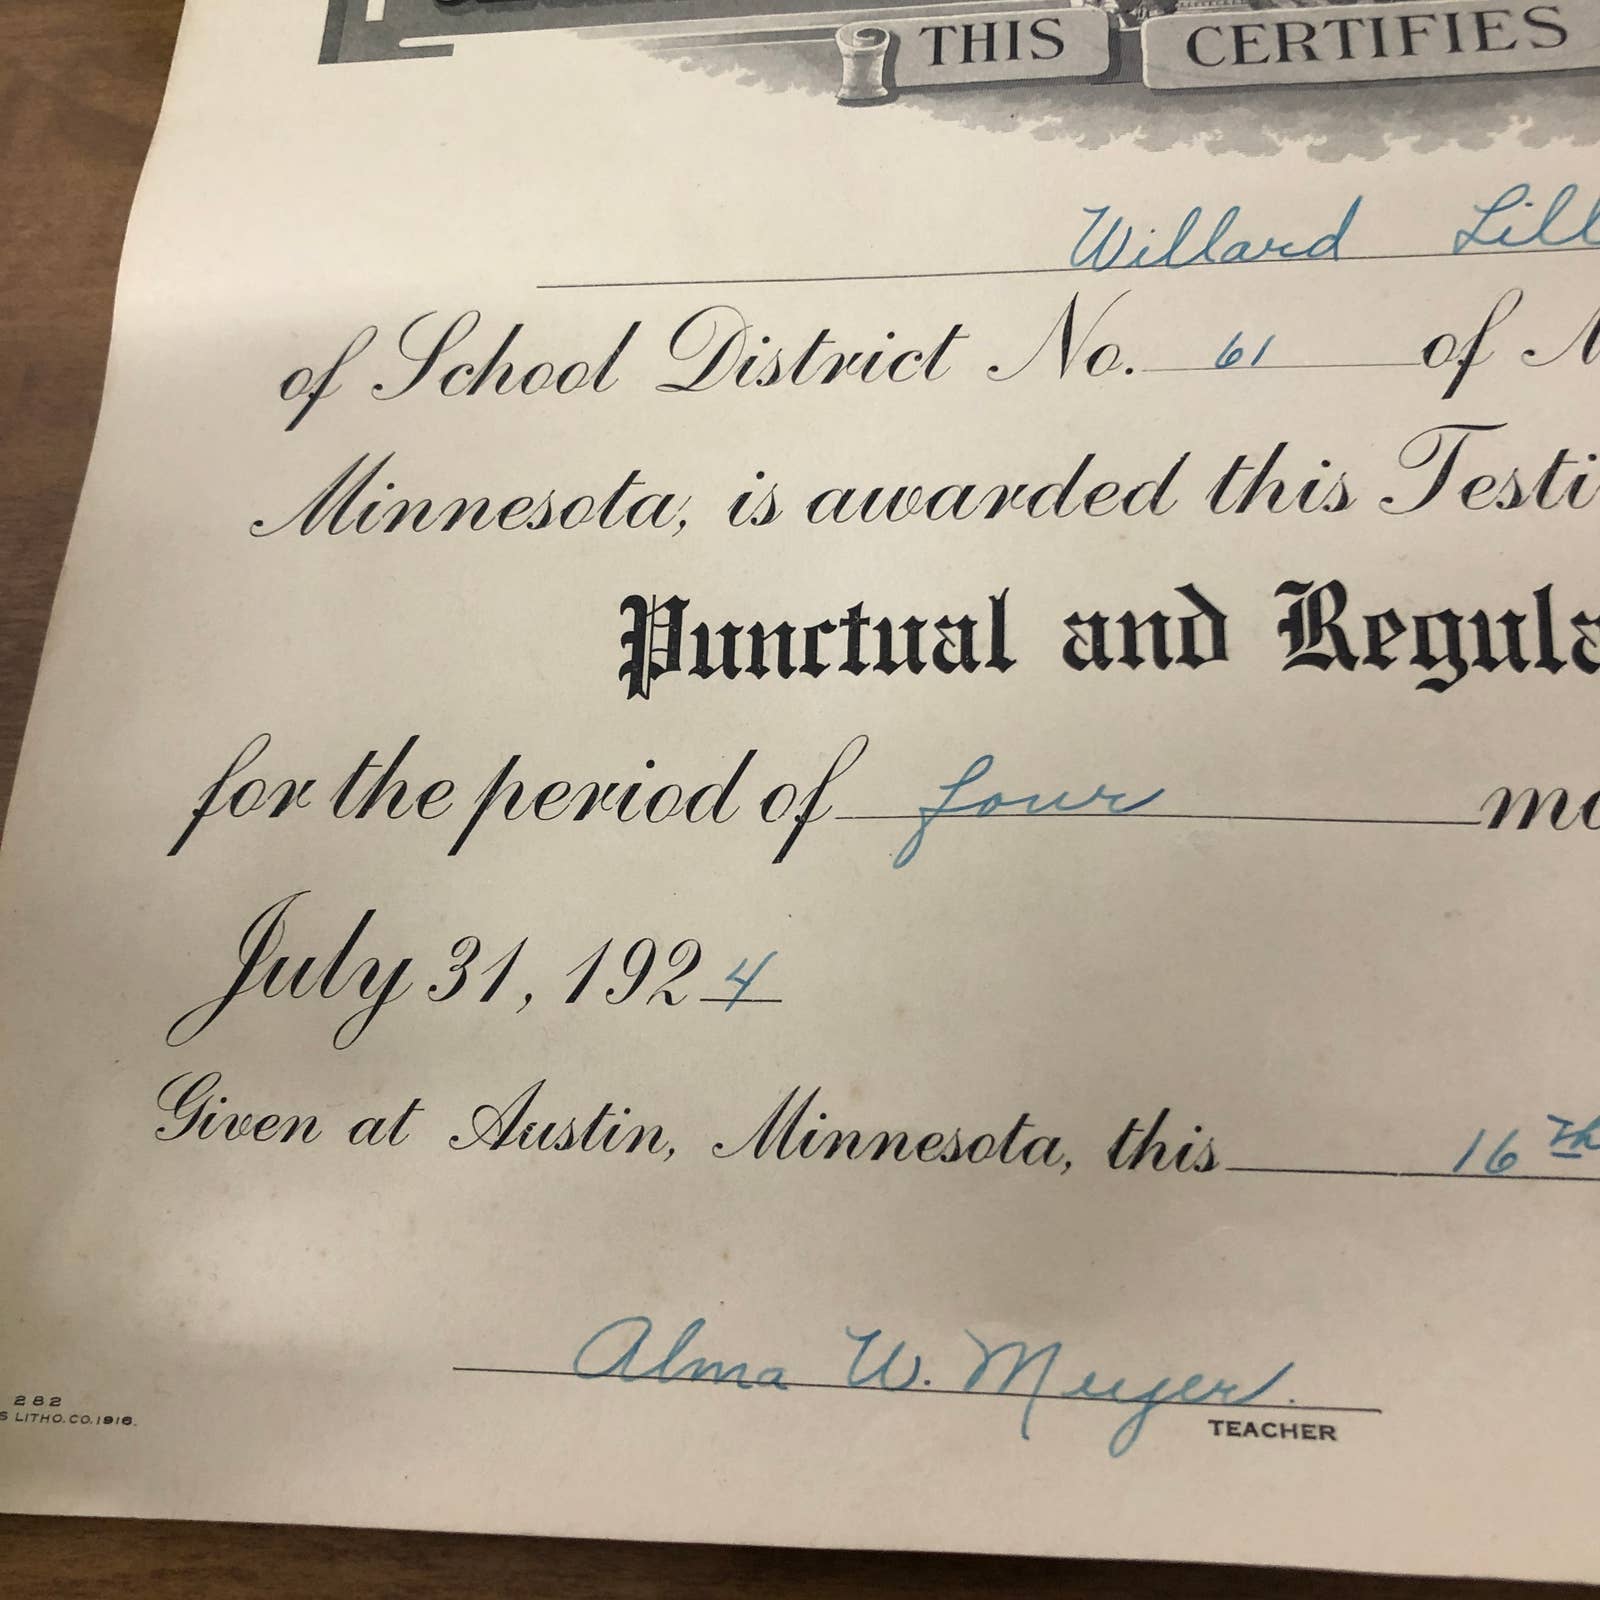 THIS CERTIFIES
Willard Lill
of School District No. 61 of M
Minnesota, is awarded this Testi
Punctual and Regula
for the period of four mo
July 31, 1924
Given at Austin, Minnesota, this 16th
Alma W. Meyer.
TEACHER
282
S LITHO.CO.1916.